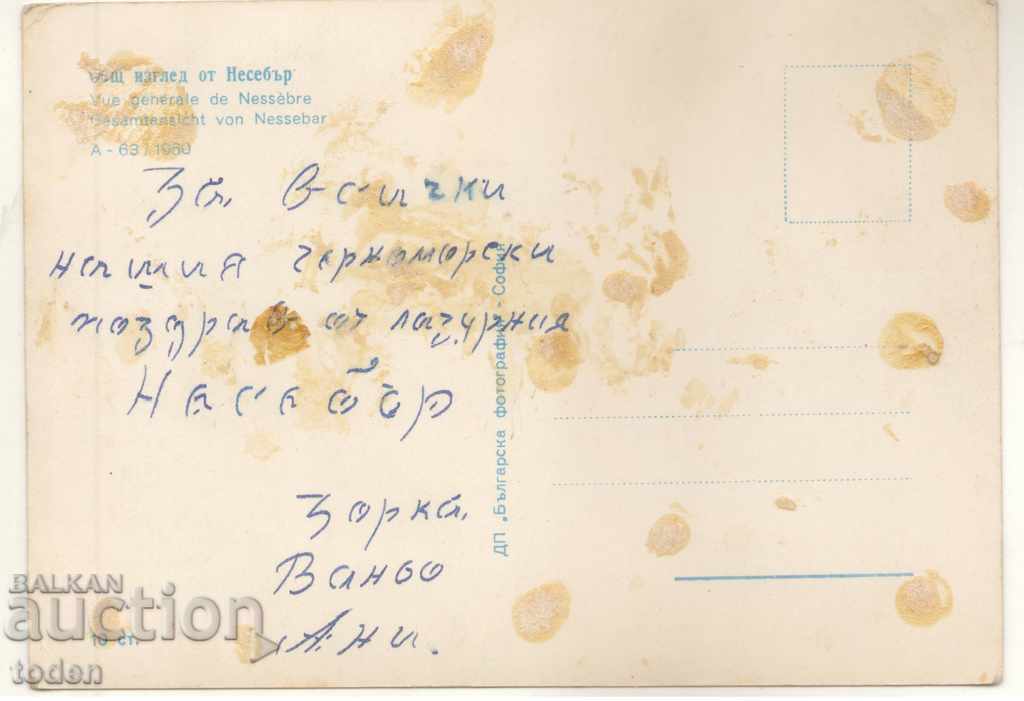 Общ изглед от Несебър
Vue générale de Nessèbre
Gesamtansicht von Nessebar
А - 63 / 1960
За всички
нашия черноморски
поздрав от лазурния
Несебър
Зорка
Ваньо
Ани.
ДП „Българска фотография" - София
10 ст.
BALKAN
auction
toden